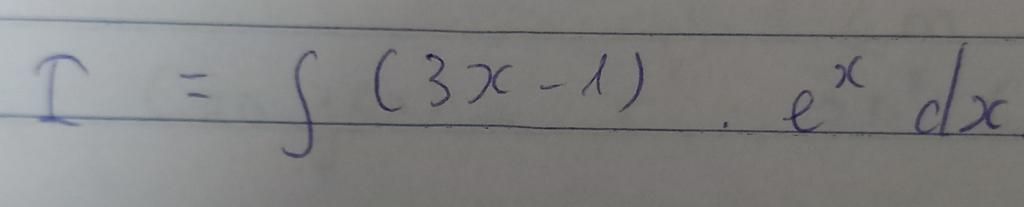 I = ∫ (3x - 1) . eˣ dx